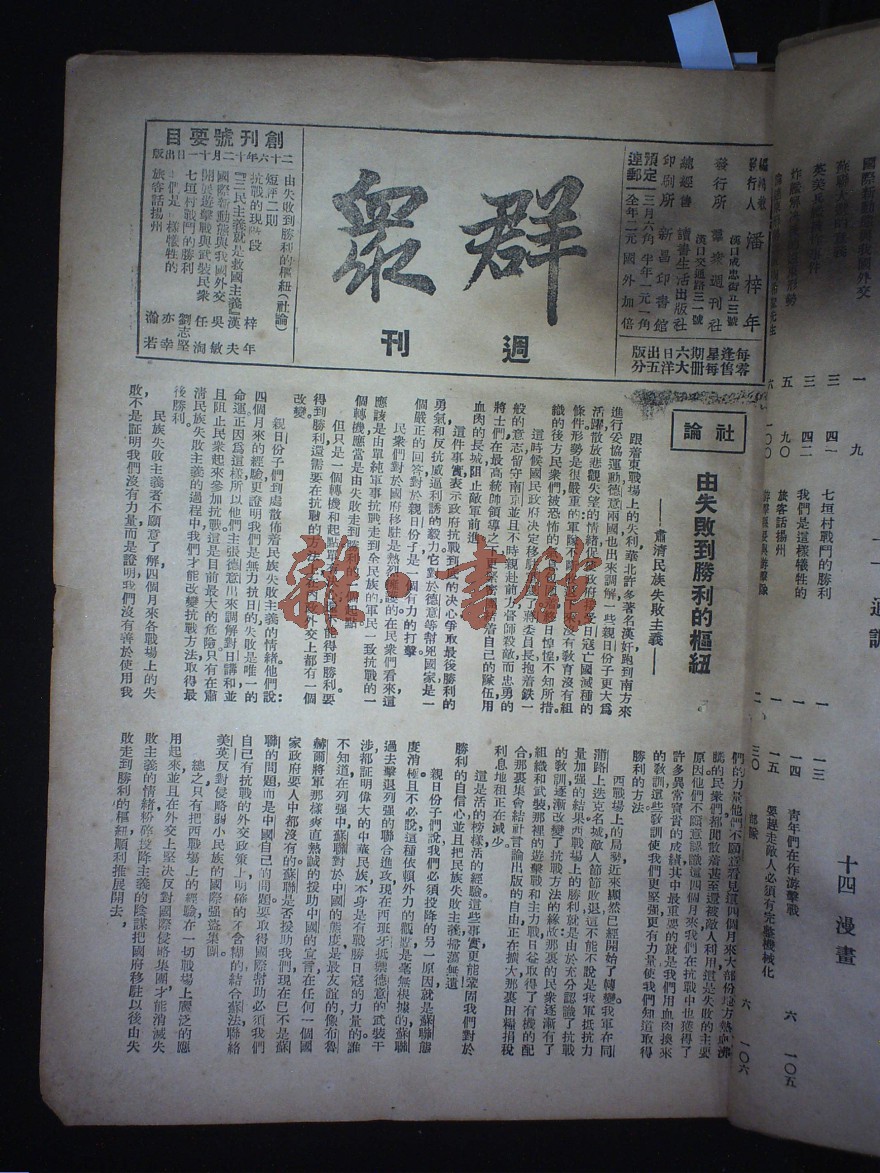 群眾
週刊
編輯兼發行人 潘梓年
漢口成忠街五三號
發行所 群衆週刊社
漢口交通路三一號
總經售 讀書生活出版社
印刷所 新昌印書館
預定連郵 三月六角 半年一元一角
全年二元 國外加倍
每逢星期六出版
零售每冊大洋五分
創刊號要目
二十六年十二月十一日出版
由失敗到勝利的樞紐(社論)
短評二則
抗戰的現階段 梓年
『三民主義就是救國主義』 漢夫
國際新動態與我國外交 吳敏
開展遊擊戰與武裝民衆 任洵
七垣村戰鬥的勝利 劉志堅
我們是這樣犧牲的 亦幸
旅客話揚州 瀹若
社論
由失敗到勝利的樞紐
——肅清民族失敗主義——
跟着東戰場上的失利,華北許多著名漢奸跑到南方來
進行妥協運動,德意兩國也出來調解,一些親日份子更大爲
活躍,散放悲觀失望的情緒,
條件,形勢是很嚴重的,
織的後方民衆們,被恐怖的
這時候國民政府決定移
般的意志,留守南京,並且不時親赴前方督師殺敵,而忠勇的
將士們,在最高統帥領導之下,
血肉的長城,阻止敵軍前進。
這件事實,表示政府抗戰到底的决心,爭取最後勝利的
勇氣,和反抗威逼利誘的毅力,它對於德意等幫兇國家是一
個嚴正的回答,對於親日份子是一個有力的打擊。
民衆們對於國府移駐是熱烈擁護的,在民衆們看來,這
應該是由單純軍事抗戰走到全民族的軍民一致抗戰的一
個轉機,應當是由失敗走到勝利的
但只是一個轉機和起點,
得到勝利,還需要在抗戰的方法上,
改變。
親日份子們到處散佈着民族失敗主義的情緒,他們說:
四個月來的經驗更證明我們是無力抗日的,失敗是唯一的
命運,正因爲這樣,所以他們主張德意出來調解,對日講和,並
且阻止民衆起來參加抗戰,這是目前最大的危險,只有在肅
清民族失敗主義的過程中,我們才能改變抗戰方法,取得最
後勝利。
民族失敗主義者不願意了解,四個月來各戰場上的失
敗,不是證明我們沒有力量,而是證明我們沒有善於使用我
們的力量,他們不願意看見,這四個月來,大部份地方,熱血沸
騰的民衆們都閒散着,甚至還被敵人利用,這是失敗的主要
原因,他們不願意認識,這四個月來,我們在抗戰中也獲得了
許多異常寶貴的成績,其中最重要的就是我們用血肉換來
的敎訓,這些敎訓使我們更堅强更有力量,使我們知道取得
勝利的方法。
西戰場上的局勢,近來顯然已經開始了轉變,我軍在同
蒲路上迭克名城,敵人節節敗退,這不能不說是我軍抵抗力
量加强的結果,西戰場上的勝利,就是由於充分認識了抗戰
的敎訓,逐漸改變了抗戰方法的緣故,那裏的民衆逐漸有了
組織和武裝,那裡的遊擊戰和主力戰,日益取得了有機的配
合,那裏集會結社言論出版的自由正在擴大,那裏田糧捐稅
利息地租正在減少。
這是活的榜樣,活的經驗,這些事實更能鞏固我們對於
勝利的自信心,並且把民族失敗主義掃蕩無遺。
親日份子們說,我們必須投降的另一原因,就是蘇聯態
度消極,且不必說這種依賴外力的觀點是毫無根據的,蘇聯
過去擊退列强的聯合進攻,現在西班牙抵禦德意的武裝干
涉,都証明偉大的中華民族本身是有戰勝日寇的力量的,誰
不知道在列强中,蘇聯對於中國的態度是最友誼的,像布魯
赫爾將軍那樣爽直熱誠的援助中國的宣言,在任何一個國
家政府要人中都沒有的,蘇聯是否援助我們,現在已不是蘇
聯的問題,而是中國自己的問題,要取得國際幫助,必須我們
自己有抗戰的外交政策,上明確的不含糊的結合蘇法,聯絡
美英,反對侵略弱小民族的國際强盜集團。
總之,只有把西戰場上的經驗,在一切戰場上廣泛的應
用起來,並且在外交上堅决反對國際侵略集團,才能消滅失
敗主義的情緒,粉碎投降主義的陰謀,把國府移駐以後,由失
敗走到勝利的樞紐順利推展開去,
國際新動態與我國外交 一 九
三 四一
三 四二
五 九〇
六 一〇〇
七垣村戰鬥的勝利 一 一三
我們是這樣犧牲的 一 一四
旅客話揚州 一 一五
二 三〇
青年們在作游擊戰
要趕走敵人必須有完整機械化部隊 六 一〇五
六 一〇六
十四 漫畫
雜·書館